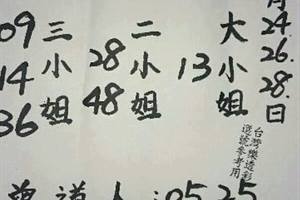 月24.26.28.日
台灣樂透彩
選號參考用
大小姐
13
二小姐
28
48
三小姐
09
14
36
曾道人:05 25